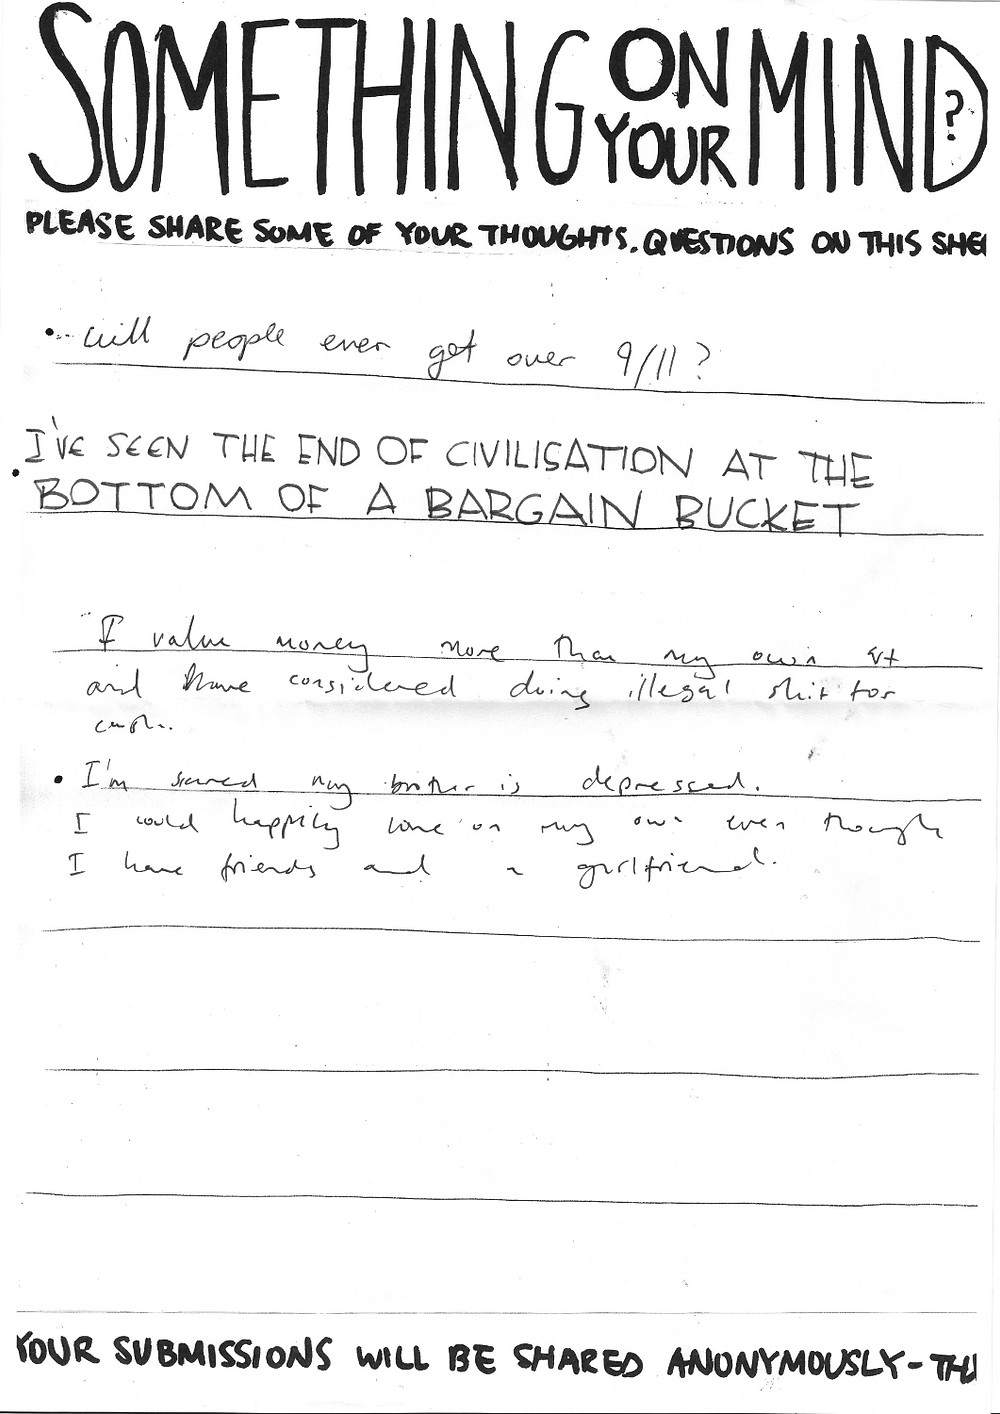 SOMETHING ON YOUR MIND?
PLEASE SHARE SOME OF YOUR THOUGHTS. QUESTIONS ON THIS SHE
• Will people ever get over 9/11?
I'VE SEEN THE END OF CIVILISATION AT THE
• BOTTOM OF A BARGAIN BUCKET
I value money more than my own
and have considered doing illegal shit for
cash..
• I'm scared my brother is depressed.
I could happily on my own even though
I have friends and a girlfriend.
YOUR SUBMISSIONS WILL BE SHARED ANONYMOUSLY -